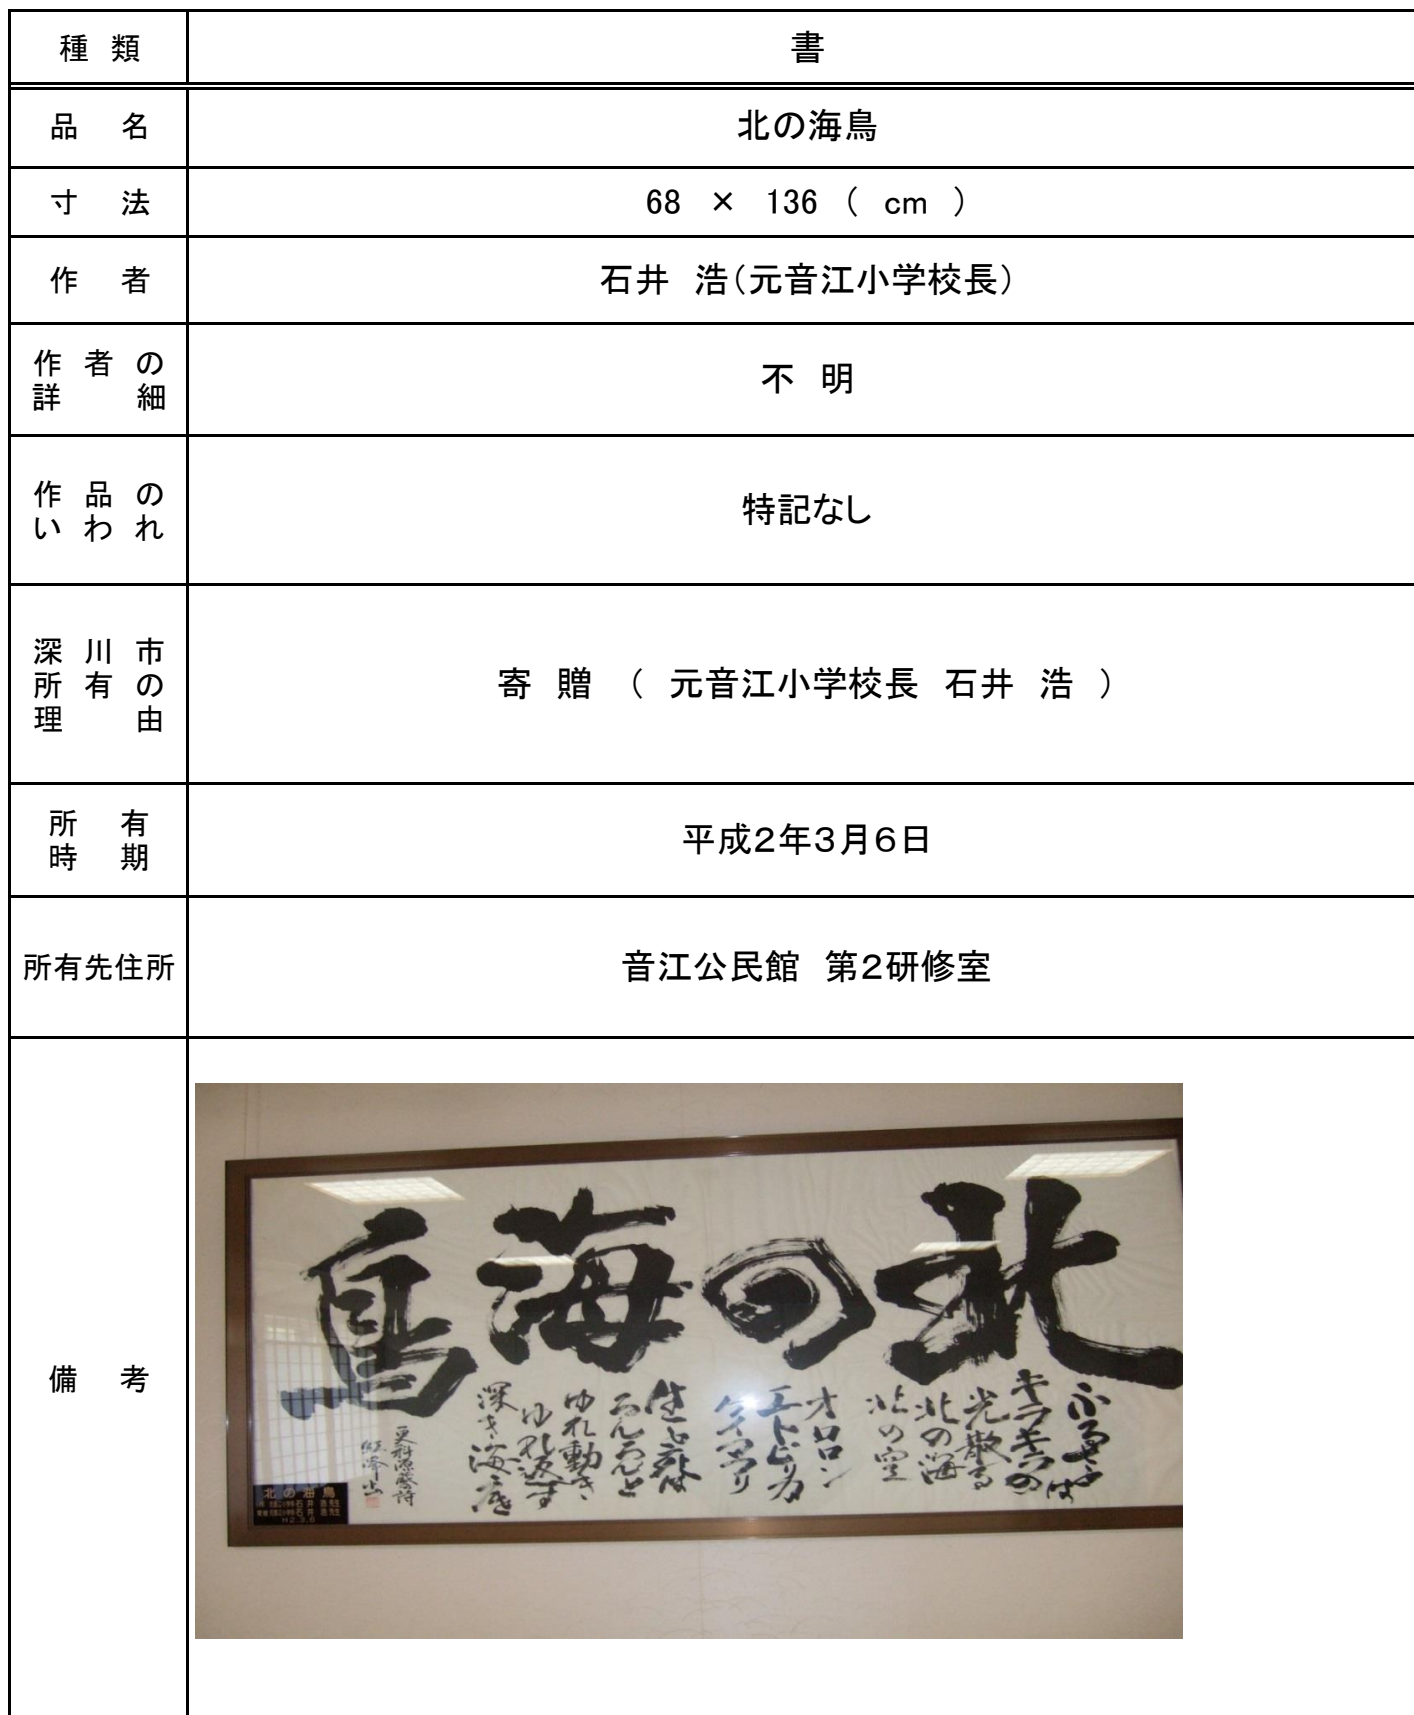 種 類 書
品 名 北の海鳥
寸 法 68 × 136 ( cm )
作 者 石井 浩(元音江小学校長)
作 者 の
詳 細
不 明
作 品 の
い わ れ
特記なし
深 川 市
所 有 の
理 由
寄 贈 ( 元音江小学校長 石井 浩 )
所 有
時 期
平成2年3月6日
所有先住所 音江公民館 第2研修室
備 考
北の海鳥
ふるさとは
キラキラの
光散る
北の海
北の空
オロロン
エトピリカ
ケイマフリ
生命は
らんらんと
ゆれ動き
ゆれ返す
深き海底
更科源蔵詩
北の海鳥
石井 浩先生
石井 浩先生
H2.3.6